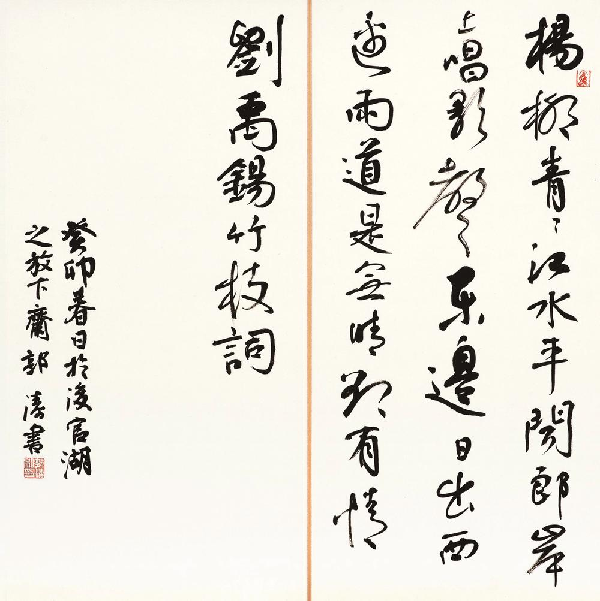 楊柳青〻江水平聞郎岸
上唱歌聲東邊日出西
邊雨道是無晴卻有情
劉禹錫竹枝詞
癸卯春日於後官湖
之放下齋郭濤書